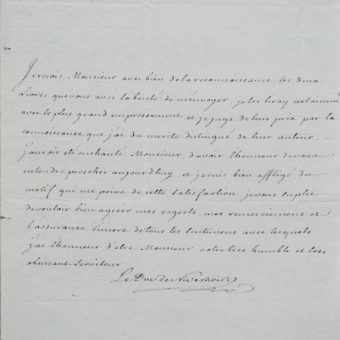 Je reçois, Monsieur avec bien de la reconnaissance les deux
Livres que vous avés la bonté de m'envoyer, je les liray certainem.t
avec le plus grand empressement et je juge de leur prix par la
connoissance que j'ai du merite distingué de leur auteur.
j'aurois eté enchanté Monsieur, d'avoir l'honneur de vous
entendre prescher aujourdhuy et je suis bien affligé du
motif qui me prive de cette satisfaction je vous suplie
de vouloir bien agreer mes regrets, mes remerciemens et
l'assurance sincere de tous les sentimens avec lesquels
j'ai l'honneur d'etre Monsieur votre tres humble et tres
obeissant Serviteur
Le Duc de Nivernois